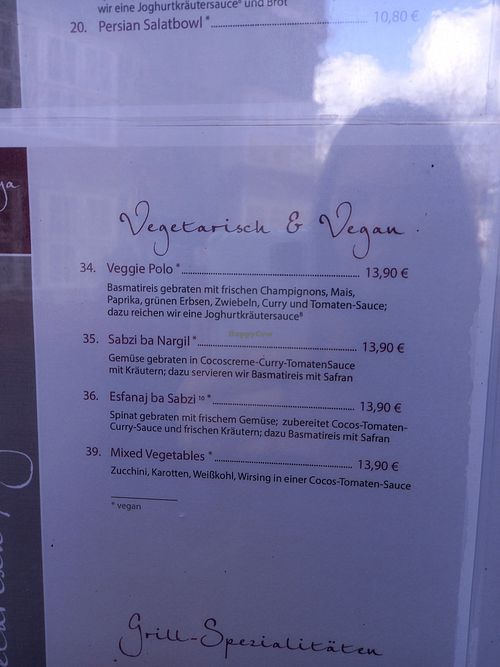 wir eine Joghurtkräutersauce⁸ und Brot
20. Persian Salatbowl * 10,80 €
Vegetarisch & Vegan
34. Veggie Polo * 13,90 €
Basmatireis gebraten mit frischen Champignons, Mais,
Paprika, grünen Erbsen, Zwiebeln, Curry und Tomaten-Sauce;
dazu reichen wir eine Joghurtkräutersauce⁸
HappyCow
35. Sabzi ba Nargil * 13,90 €
Gemüse gebraten in Cocoscreme-Curry-TomatenSauce
mit Kräutern; dazu servieren wir Basmatireis mit Safran
36. Esfanaj ba Sabzi ¹⁰ * 13,90 €
Spinat gebraten mit frischem Gemüse; zubereitet Cocos-Tomaten-
Curry-Sauce und frischen Kräutern; dazu Basmatireis mit Safran
39. Mixed Vegetables * 13,90 €
Zucchini, Karotten, Weißkohl, Wirsing in einer Cocos-Tomaten-Sauce
* vegan
Grill-Spezialitäten